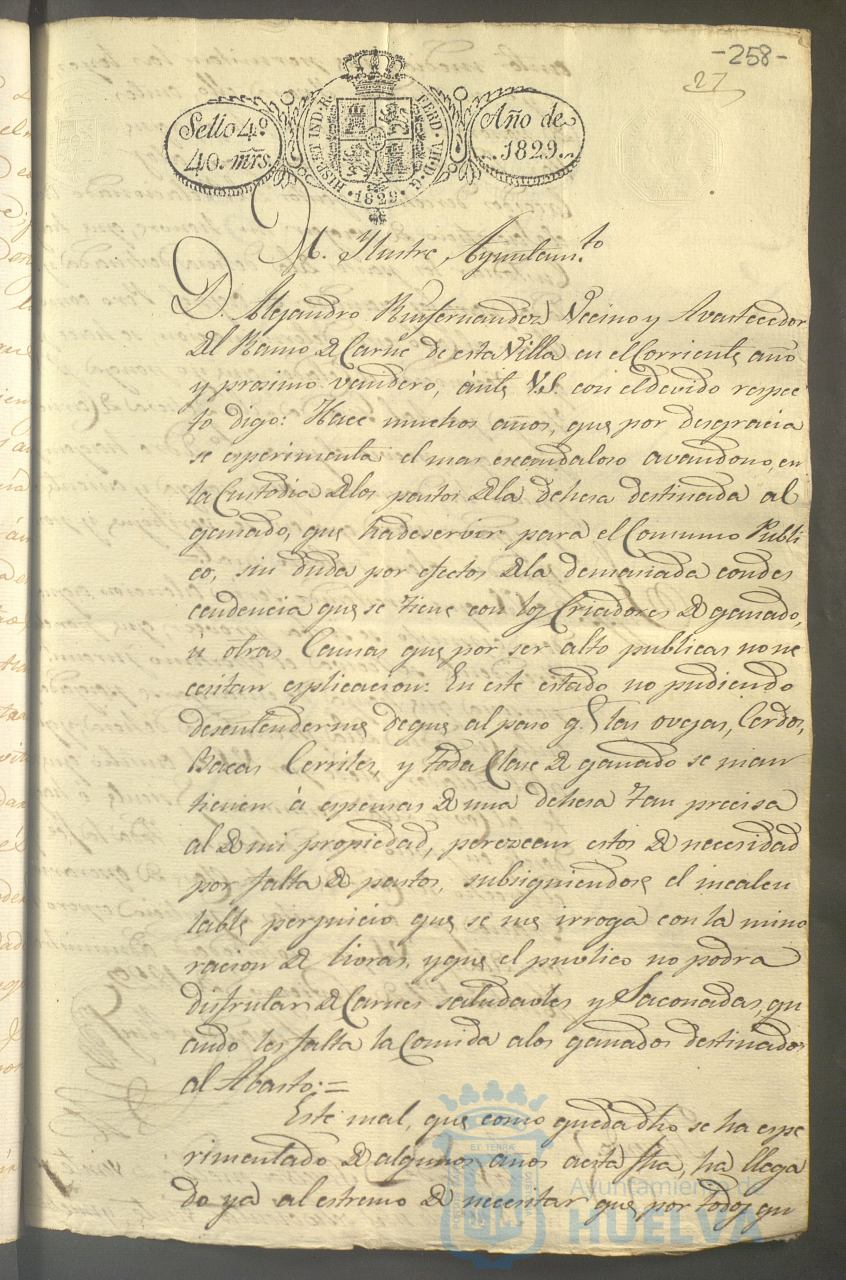 -258-
27
Sello 4º
40. mrs.
HISP. ET IND. R. FERD. VII. D. G. 1829.
Año de
1829.
M. Ylustre Ayuntam.to
D. Alejandro Ruifernandez Vecino y Avastecedor
del Ramo de Carne de esta Villa en el Corriente año
y procsimo venidero, ánte V.S. con el devido respec
to digo: Hace muchos años, que por desgracia
se esperimenta el mas escandaloso avandono, en
la Custodia de los pastos de la dehesa destinada al
ganado, que ha de servir para el Consumo Publi
co, sin duda por efectos de la demasiada condes
cendencia que se tiene con los Criadores de ganado,
u otras Causas que por ser alto publicas no ne
cesitan esplicacion: En este estado no pudiendo
desentenderme de que al paso q.e las ovejas, Cerdos,
Bacas Cerriles, y toda Clase de ganado se man
tienen á espensas de una dehesa tan precisa
al de mi propiedad, perezcan estos de necesidad
por falta de pastos, subsiguiendose el incalcu
lable perjuicio que se me irroga con la mino
racion de livras, y que el publico no podra
disfrutar de Carnes saludables y Saconadas, qu
ando les falta la Comida a los ganados destinados
al Abasto: =
Este mal, que como queda dho se ha espe
rimentado de algunos años a esta fha, ha llega
do ya al estremo de necesitar que por todos qu
Ayuntamiento de
HUELVA